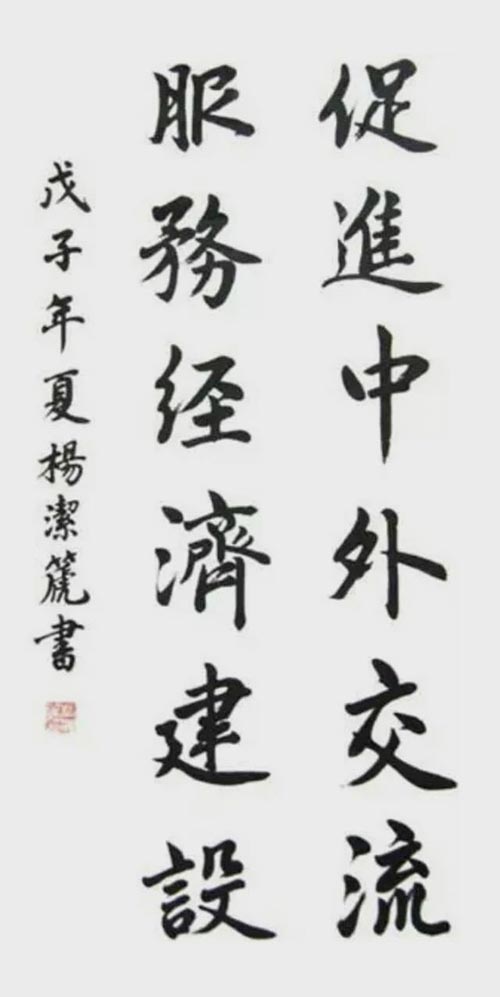 促進中外交流
服務经濟建設
戊子年夏楊潔篪書